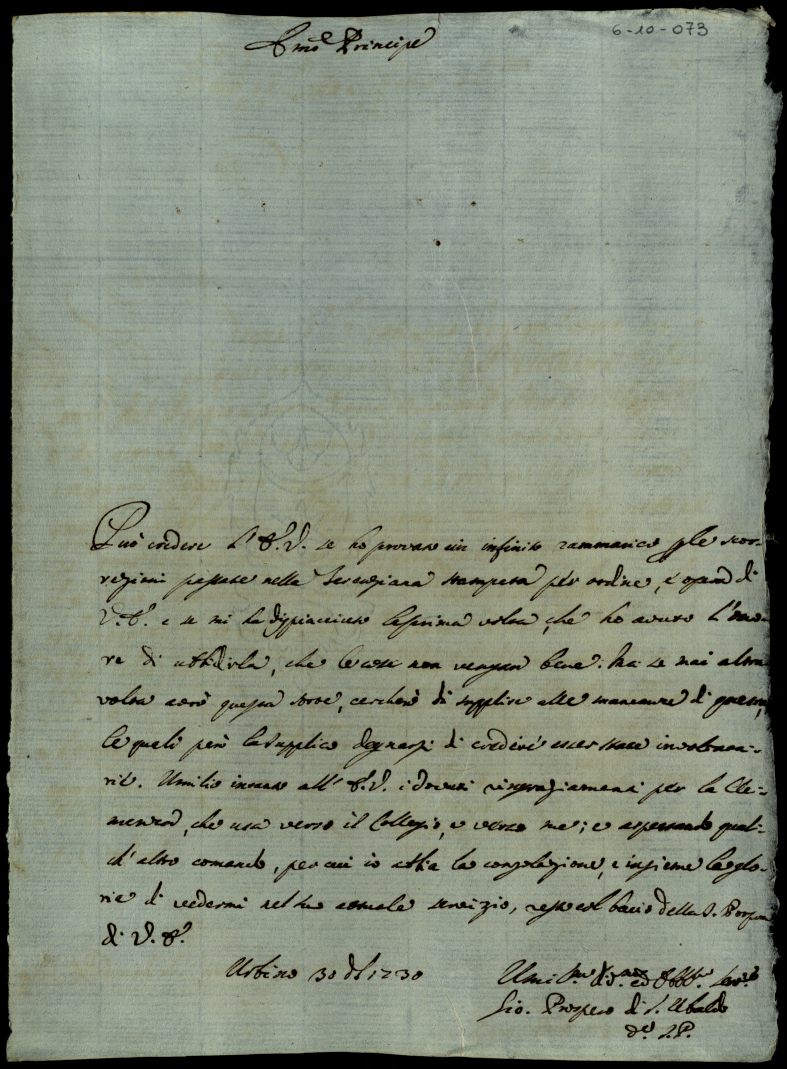 6-10-073
Emo Principe
Può credere l'E.V. se ho provato un infinito rammarico p le scor-
rezioni passate nella stampata per ordine, e opera di
V.E. e se mi ha dispiaciuto la prima volta, che ho avuto l'ono-
re di ubbidirla, che le cose non vengan bene. Ma se mai altra
volta avrò questa sorte, cercherò di supplire alle mancanze di questa,
le quali però la supplico degnarsi di credere esser state involonta-
rie. Umilio intanto all'E.V. i dovuti ringraziamenti per la Cle-
menza, che usa verso il Collegio, e verso me; e aspettando qual-
ch'altro comando, per cui io abbia la consolazione, e insieme la glo-
ria di vedermi nel suo attuale servizio, resto col bacio della S. Porpora
di V.E.
Urbino 30 1730
Umilmo ed Obbmo
Gio. Prospero di S. Ubaldo
S.P.